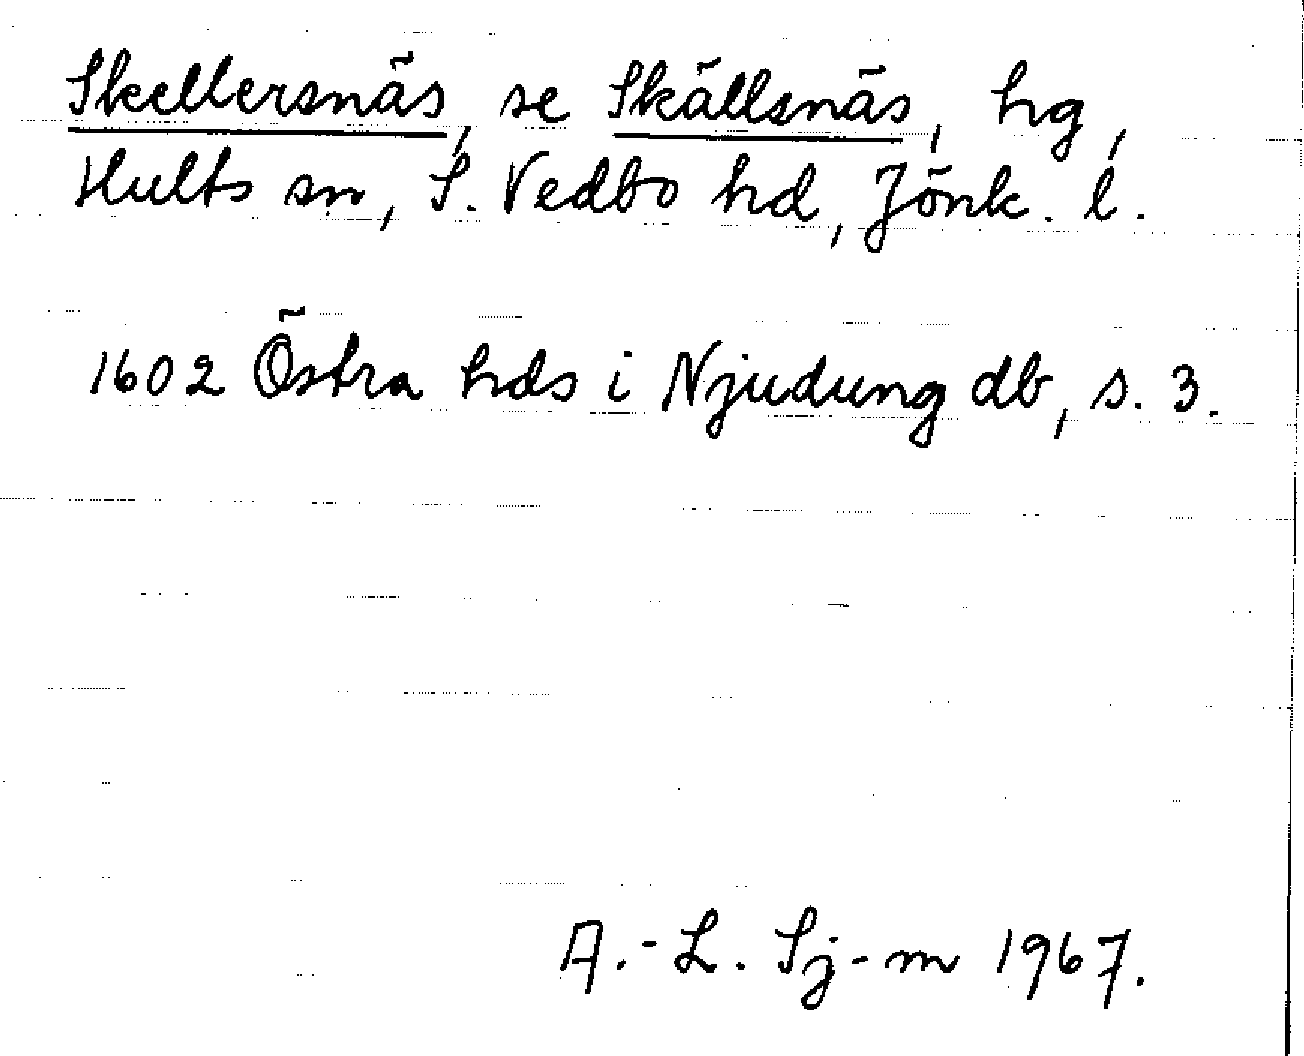 Skellersnäs, se Skällsnäs, hg,
Hults sn, S. Vedbo hd, Jönk. l.
1602 Östra hds i Njudung db, s. 3.
A.-L. Sj-m 1967.